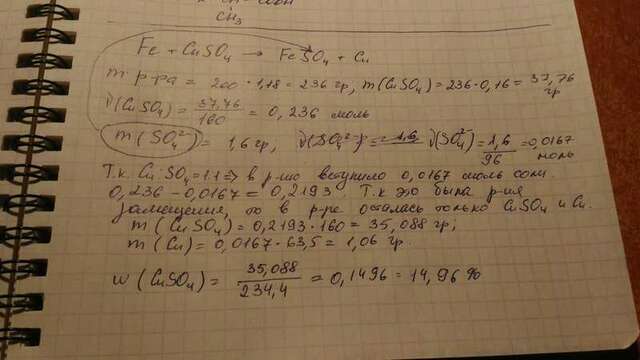 CH₃
Fe + CuSO₄ → FeSO₄ + Cu
m р-ра = 200 · 1,18 = 236 гр, m(CuSO₄) = 236 · 0,16 = 37,76 гр
ν(CuSO₄) = 37,76/160 = 0,236 моль
m(SO₄²⁻) = 1,6 гр, ν(SO₄²⁻) = 1,6 ν(SO₄²⁻) = 1,6/96 = 0,0167 моль
Т.к. Cu:SO₄ = 1:1 => в р-цию вступило 0,0167 моль соли.
0,236 - 0,0167 = 0,2193. Т.к это была р-ия
замещения, то в р-ре осталась только CuSO₄ и Cu.
m(CuSO₄) = 0,2193 · 160 = 35,088 гр;
m(Cu) = 0,0167 · 63,5 = 1,06 гр.
w(CuSO₄) = 35,088/234,4 = 0,1496 = 14,96 %